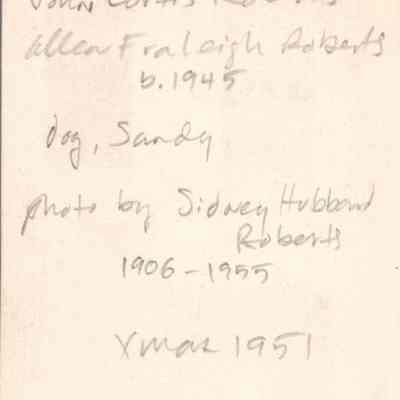 John Curtis Roberts
Allen Fraleigh Roberts
b. 1945
dog, Sandy
photo by Sidney Hubbard
Roberts
1906-1955
Xmas 1951